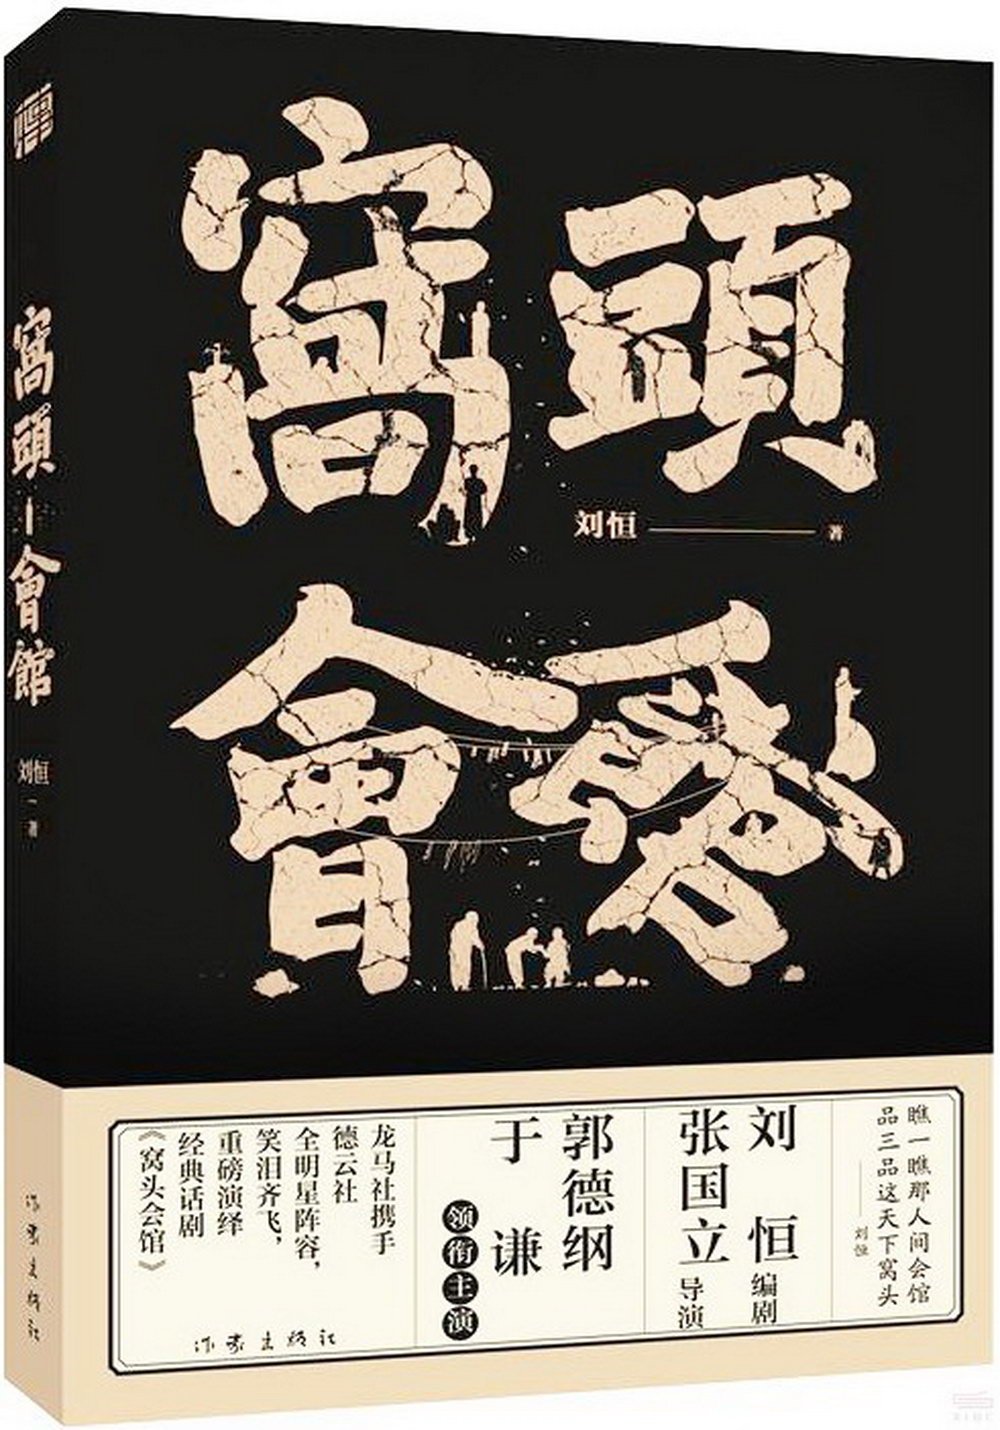 窩頭
會館
刘恒 著
瞧一瞧那人间会馆
品三品这天下窝头
——刘恒
刘恒 编剧
张国立 导演
郭德纲
于谦
领衔主演
龙马社携手
德云社
全明星阵容，
笑泪齐飞，
重磅演绎
经典话剧
《窝头会馆》
作家出版社
窩頭會館
刘恒 著
作家出版社